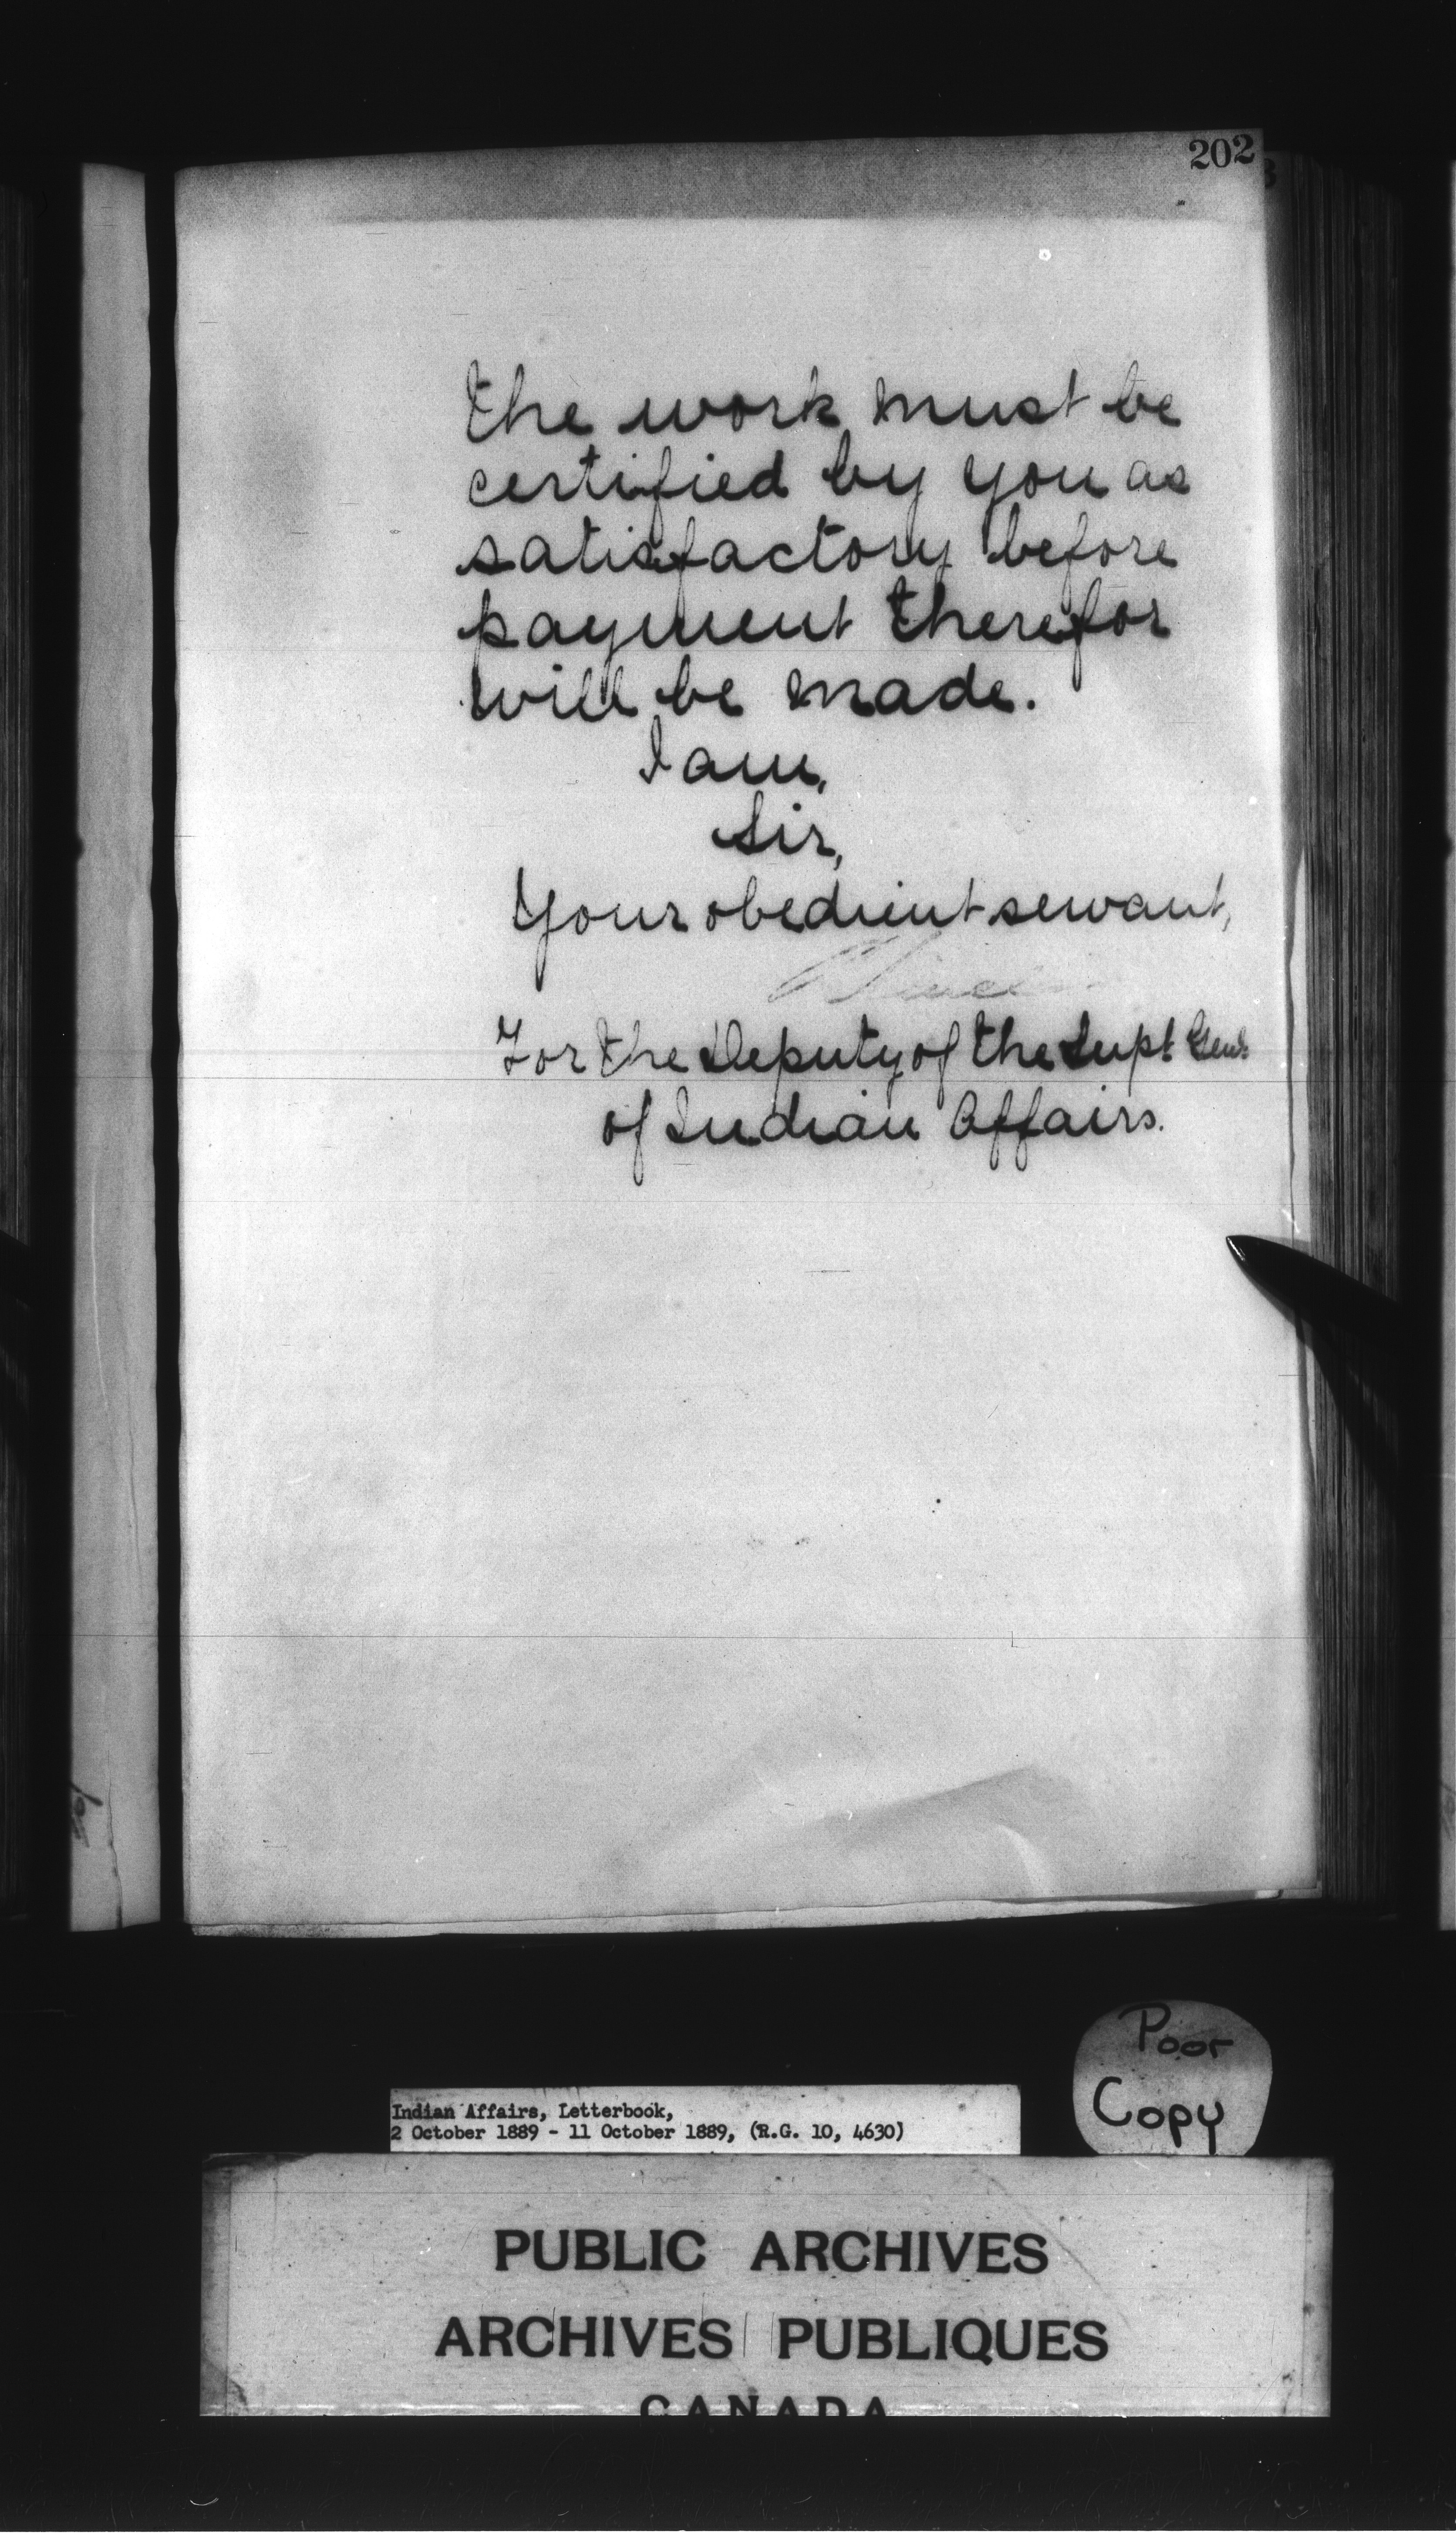 202
the work must be
certified by you as
satisfactory before
payment therefor
will be made.
I am,
Sir,
Your obedient servant,
For the Deputy of the Supt. Genl.
of Indian Affairs.
Poor
Copy
Indian Affairs, Letterbook,
2 October 1889 - 11 October 1889, (R.G. 10, 4630)
PUBLIC ARCHIVES
ARCHIVES PUBLIQUES
CANADA